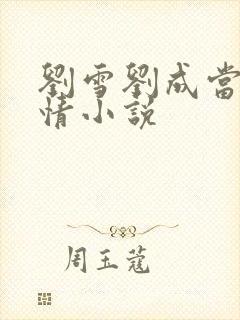 劉雪劉成當
情小說
周玉蔻